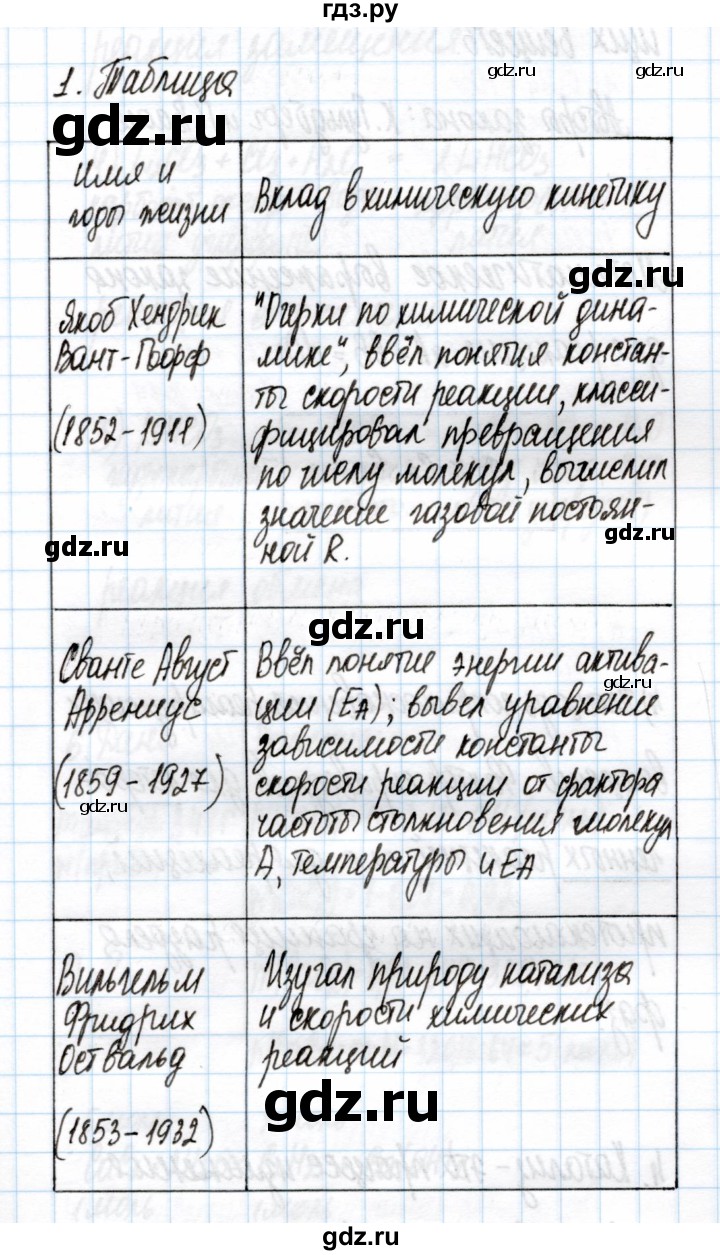 гдз.ру
1. Таблица
gdz.ru
gdz.ru
gdz.ru
Имя и
годы жизни
Вклад в химическую кинетику
gdz.ru
Якоб Хендрик
Вант-Гофф
(1852-1911)
"Очерки по химической дина-
мике", ввёл понятия констан-
ты скорости реакции, класси-
фицировал превращения
по числу молекул, вычислил
значение газовой постоян-
ной R.
gdz.ru
gdz.ru
gdz.ru
Сванте Август
Аррениус
(1859-1927)
gdz.ru
Ввёл понятие энергии актива-
ции (EA); вывел уравнение
зависимости константы
скорости реакции от фактора
частоты столкновения молекул
A, температуры и EA
gdz.ru
Вильгельм
Фридрих
Оствальд
(1853-1932)
Изучал природу катализа
и скорости химических
реакций
gdz.ru
gdz.ru
gdz.ru
гдз.ру